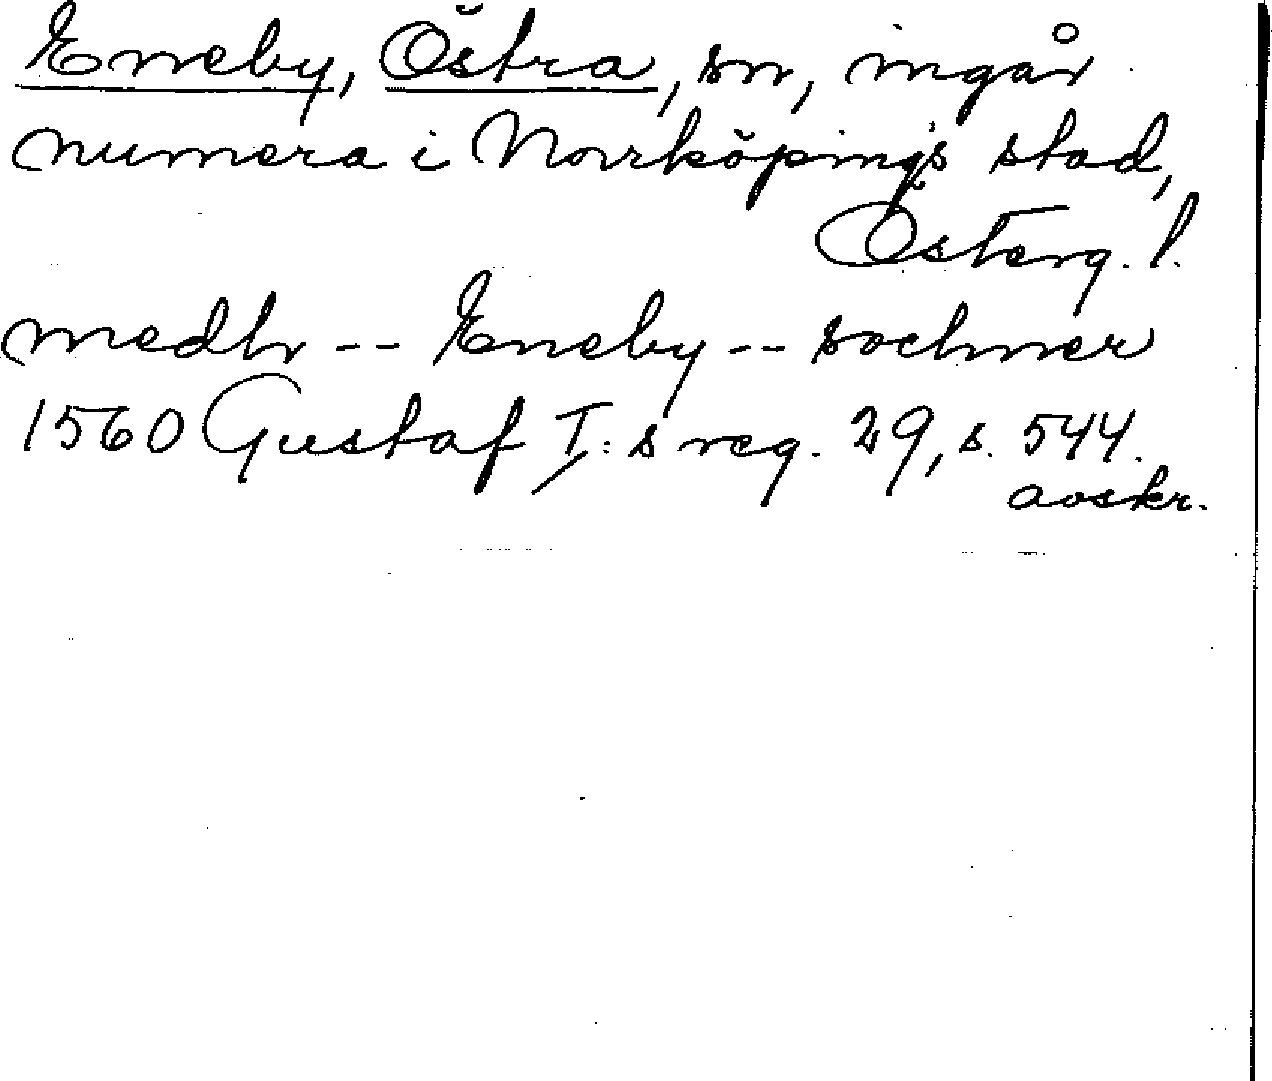 Eneby, Östra, sn, ingår
numera i Norrköpings stad,
Österg. l.
medh -- Eneby -- sochner
1560 Gustaf I:s reg. 29, s. 544.
avskr.